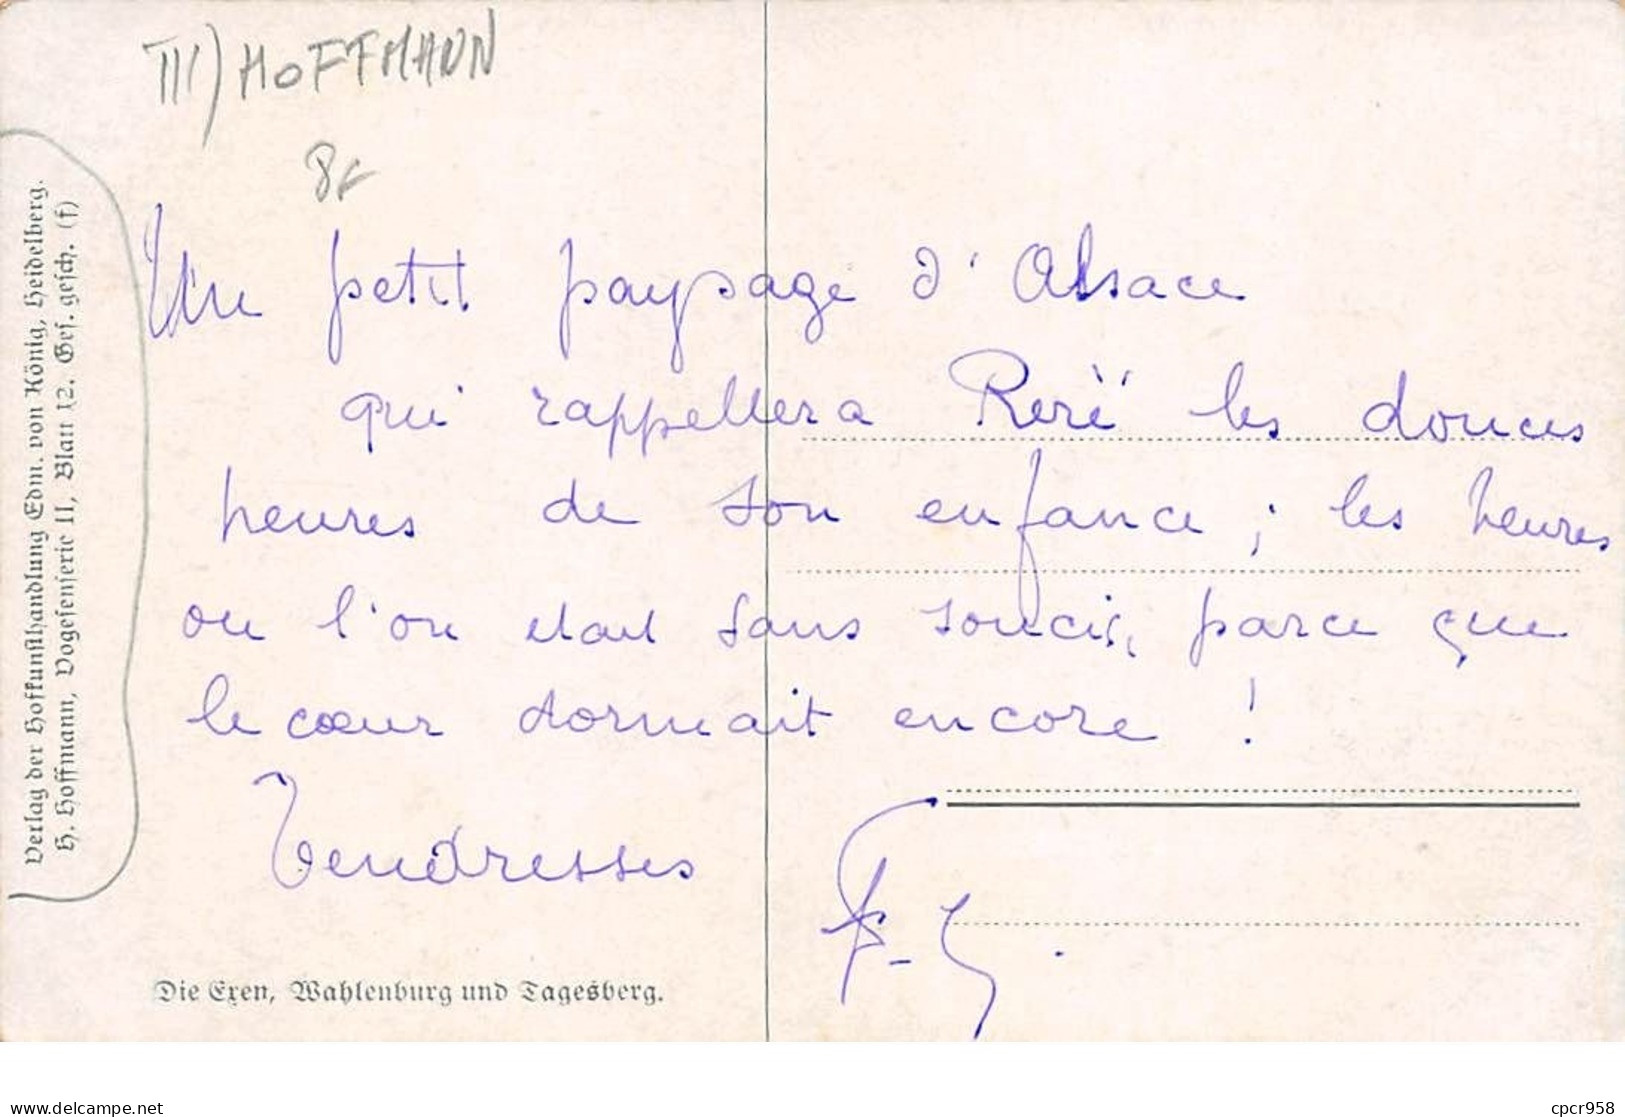 III) HOFFMANN
8f
Verlag der Hofkunsthandlung Edm. von König, Heidelberg.
H. Hoffmann, Vogesenserie II, Blatt 12. Ges. gesch. (f)
Un petit paysage d'Alsace
qui rappellera Reré les douces
heures de son enfance ; les heures
ou l'on etait sans soucis, parce que
le cœur dormait encore !
Tendresses
Die Exen, Wahlenburg und Tagesberg.
cpcr958